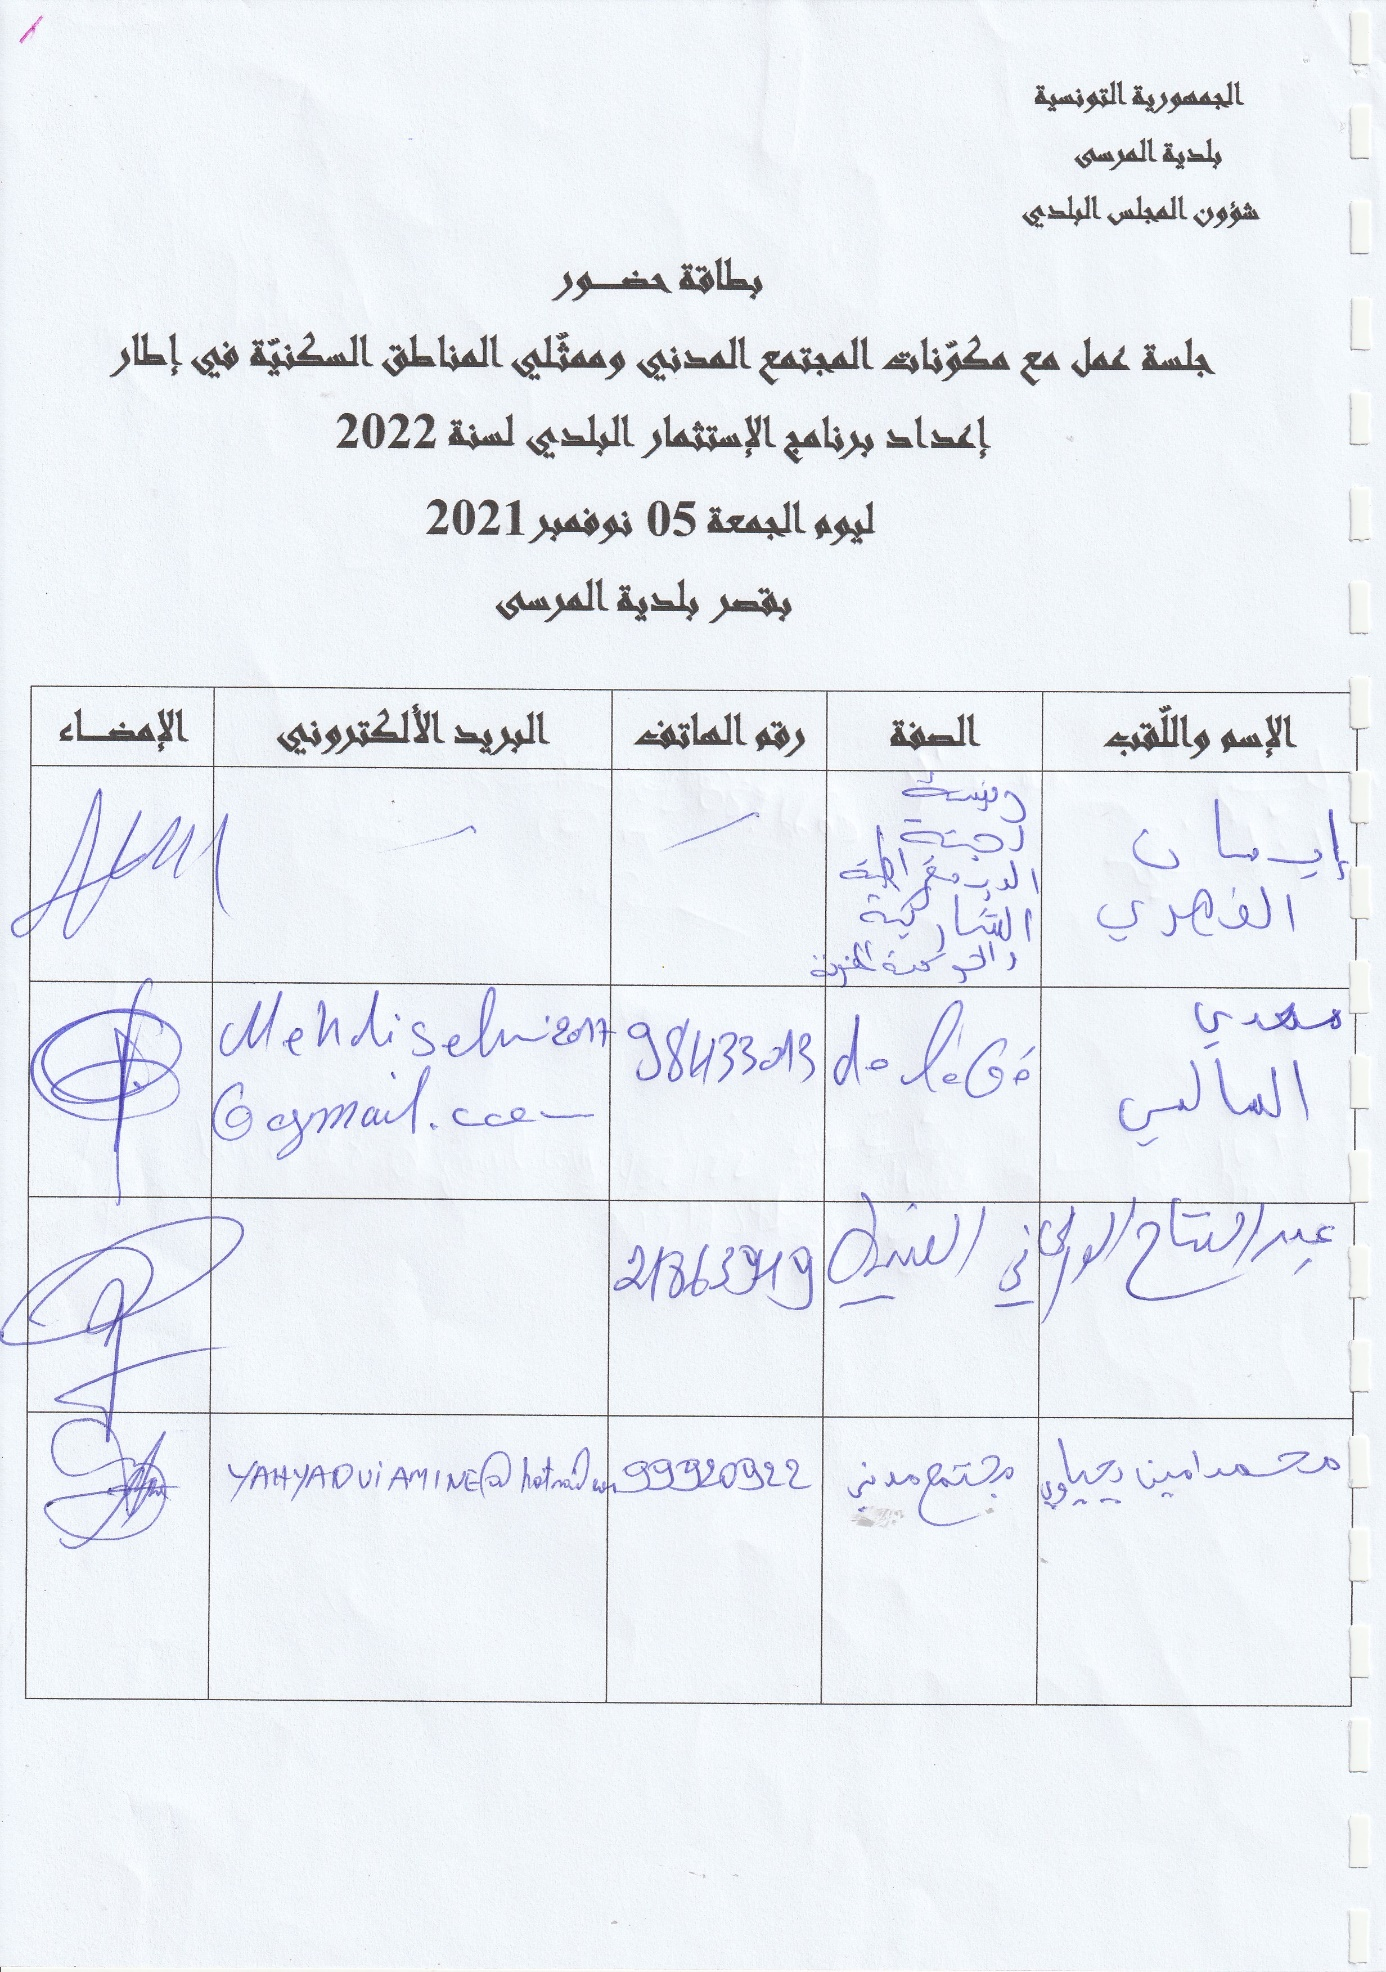 الجمهورية التونسية
بلدية المرسى
شؤون المجلس البلدي
بطاقة حضــور
جلسة عمل مع مكوّنات المجتمع المدني وممثّلي المناطق السكنيّة في إطار
إعداد برنامج الإستثمار البلدي لسنة 2022
ليوم الجمعة 05 نوفمبر 2021
بقصر بلدية المرسى
الإسم واللّقب الصفة رقم الهاتف البريد الألكتروني الإمضــاء
إيمان
الفهري
رئيسة
لجنة
الديمقراطية
التشاركية
مهدي
السالمي
délégué
98433013
Mehdiselmi2017
@gmail.com
عبد الفتاح
21863919
محمد أمين يحياوي مجتمع مدني 99920922 YAHYAOUIAMINE@hotmail.com